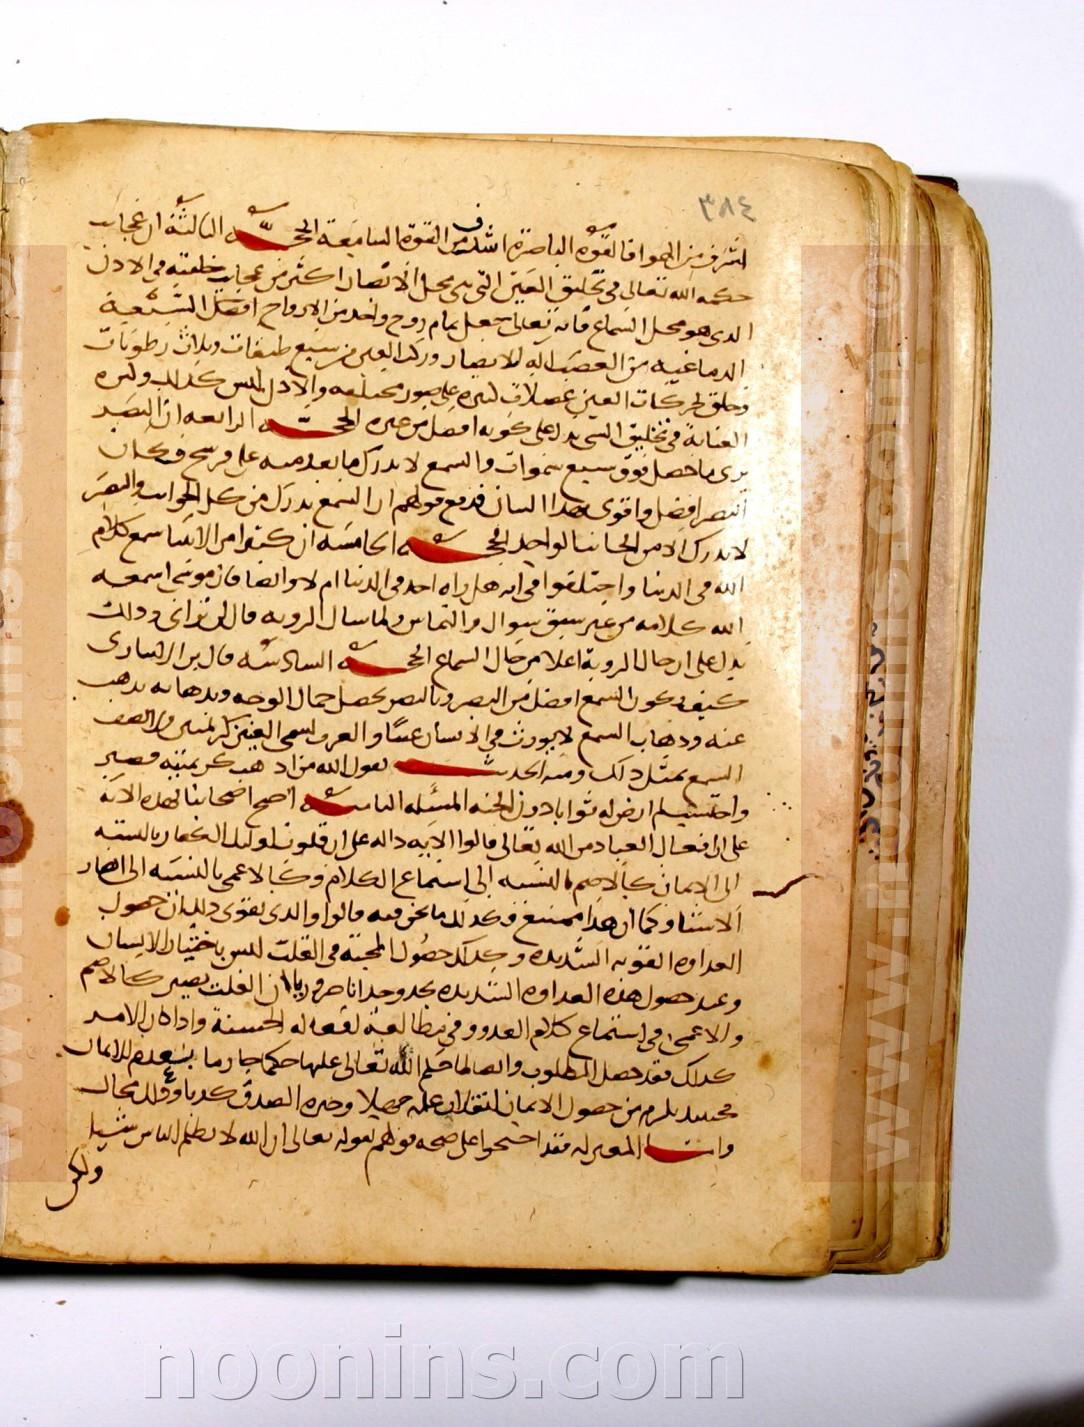 ٣٨٤
اشرف من الهوا فالقوه الباصرة اشرف من القوة السامعة الحجه الثالثة ان عجايب
حكمه الله تعالى في تخليق العين التي هي محل الابصار اكثر من عجايب خلقته في الاذن
الذى هو محل السماع فانه تعالى جعل تمام روح واحد من الارواح افضل السبعة
الدماغيه من العصب اله للابصار وركب العين من سبع طبقات وثلاث رطوبات
وخلق لحركات العين عضلات كثيره على صور مختلفه والاذن ليس كذلك وكثره
العنانة في تخليق الشي يدل على كونه افضل من غيره الحجه الرابعه ان البصر
يرى ما حصل فوق سبع سموات والسمع لا يدرك ما بعد منه على فرسخ فكان
البصر افضل واقوى بهذا البيان فدفع قولهم ان السمع يدرك من كل الجوانب والبصر
لا يدرك الا من الجانب الواحد الحجه الخامسه ان كثيرا من الانبيا سمع كلام
الله في الدنيا واختلفوا في انه هل راه احد في الدنيا ام لا وايضا فان موسى اسمعه
الله كلامه من غير سبق سوال والتماس ولما سال الرويه قال لن تراني وذلك
يدل على ان حال الروية اعلا من حال السماع الحجه السادسه قال بن الانبارى
كيف يكون السمع افضل من البصر وبالبصر يحصل جمال الوجه وبذهابه يذهب
عنه وذهاب السمع لا يورث في الانسان عيبا والعرب تسمى العينين كريمتين ولا تصف
السمع بمثل ذلك ومنه الحديث يقول الله من اذهبت كريمتيه فصبر
واحتسب لم ارض له ثوابا دون الجنه المسئله الثانيه احتج اصحابنا بهذه الايه
على ان افعال العباد من الله تعالى قالوا الايه داله على ان قلوب اوليك الكفار بالنسبه
الى الايمان كالاصم بالنسبه الى استماع الكلام وكالاعمى بالنسبه الى ابصار
الاشيا وكما ان هذا ممتنع فكذلك ما نحن فيه قالوا والذى يقوى ذلك ان حصول
العداوه القويه الشديده وكذلك حصول المحبة في القلب ليس باختيار الانسان
وعند حصول هذه العداوه الشديده يجد وجدانا ضروريا ان القلب يصير كالاصم
والاعمى في استماع كلام العدو وفي مطالعة افعاله الحسنة واذا كان الامر
كذلك فقد حصل المطلوب وايضا لما حكم الله تعالى عليها حكما جازما بعدم الايمان
فحينيذ يلزم من حصول الايمان انقلاب علمه جهلا وخبره الصدق كذبا وذلك محال
واما المعتزله فقد احتجوا على صحه قولهم بقوله تعالى ان الله لا يظلم الناس شيا
ولكن
www.noonins.com
noonins.com